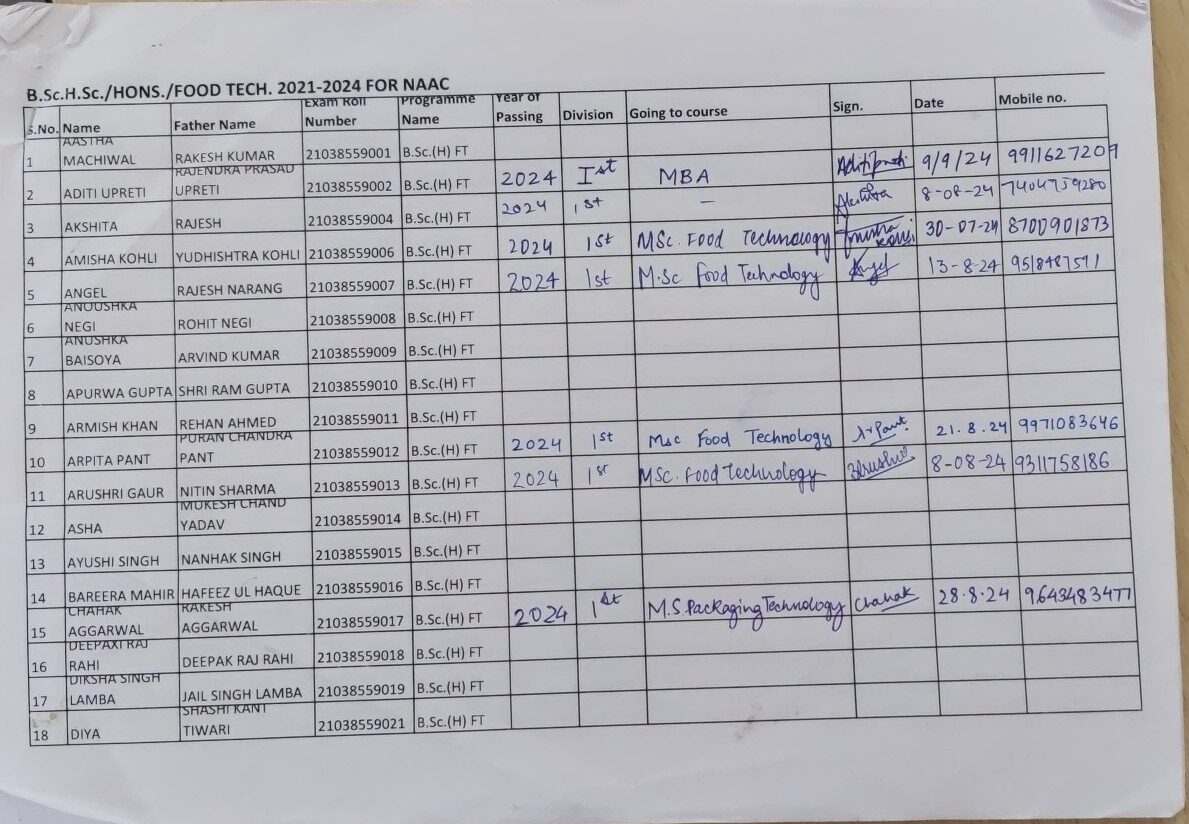 B.Sc.H.Sc./HONS./FOOD TECH. 2021-2024 FOR NAAC
S.No. Name Father Name Exam Roll Number Programme Name Year of Passing Division Going to course Sign. Date Mobile no.
1 AASTHA MACHIWAL RAKESH KUMAR 21038559001 B.Sc.(H) FT
2 ADITI UPRETI RAJENDRA PRASAD UPRETI 21038559002 B.Sc.(H) FT 2024 Ist MBA 9/9/24 9911627209
3 AKSHITA RAJESH 21038559004 B.Sc.(H) FT 2024 1st – Akshita 8-08-24 7404759280
4 AMISHA KOHLI YUDHISHTRA KOHLI 21038559006 B.Sc.(H) FT 2024 1st MSc. Food Technology 30-07-24 8700901873
5 ANGEL RAJESH NARANG 21038559007 B.Sc.(H) FT 2024 1st M.Sc Food Technology Angel 13-8-24
6 ANOUSHKA NEGI ROHIT NEGI 21038559008 B.Sc.(H) FT
7 ANUSHKA BAISOYA ARVIND KUMAR 21038559009 B.Sc.(H) FT
8 APURWA GUPTA SHRI RAM GUPTA 21038559010 B.Sc.(H) FT
9 ARMISH KHAN REHAN AHMED 21038559011 B.Sc.(H) FT
10 ARPITA PANT PURAN CHANDRA PANT 21038559012 B.Sc.(H) FT 2024 1st Msc Food Technology 21.8.24 9971083646
11 ARUSHRI GAUR NITIN SHARMA 21038559013 B.Sc.(H) FT 2024 1st MSc. Food Technology 8-08-24 9311758186
12 ASHA MUKESH CHAND YADAV 21038559014 B.Sc.(H) FT
13 AYUSHI SINGH NANHAK SINGH 21038559015 B.Sc.(H) FT
14 BAREERA MAHIR HAFEEZ UL HAQUE 21038559016 B.Sc.(H) FT
15 CHAHAK AGGARWAL RAKESH AGGARWAL 21038559017 B.Sc.(H) FT 2024 1st M.S. Packaging Technology Chahak 28-8-24 9643483477
16 DEEPAXI RAJ RAHI DEEPAK RAJ RAHI 21038559018 B.Sc.(H) FT
17 DIKSHA SINGH LAMBA JAIL SINGH LAMBA 21038559019 B.Sc.(H) FT
18 DIYA SHASHI KANT TIWARI 21038559021 B.Sc.(H) FT